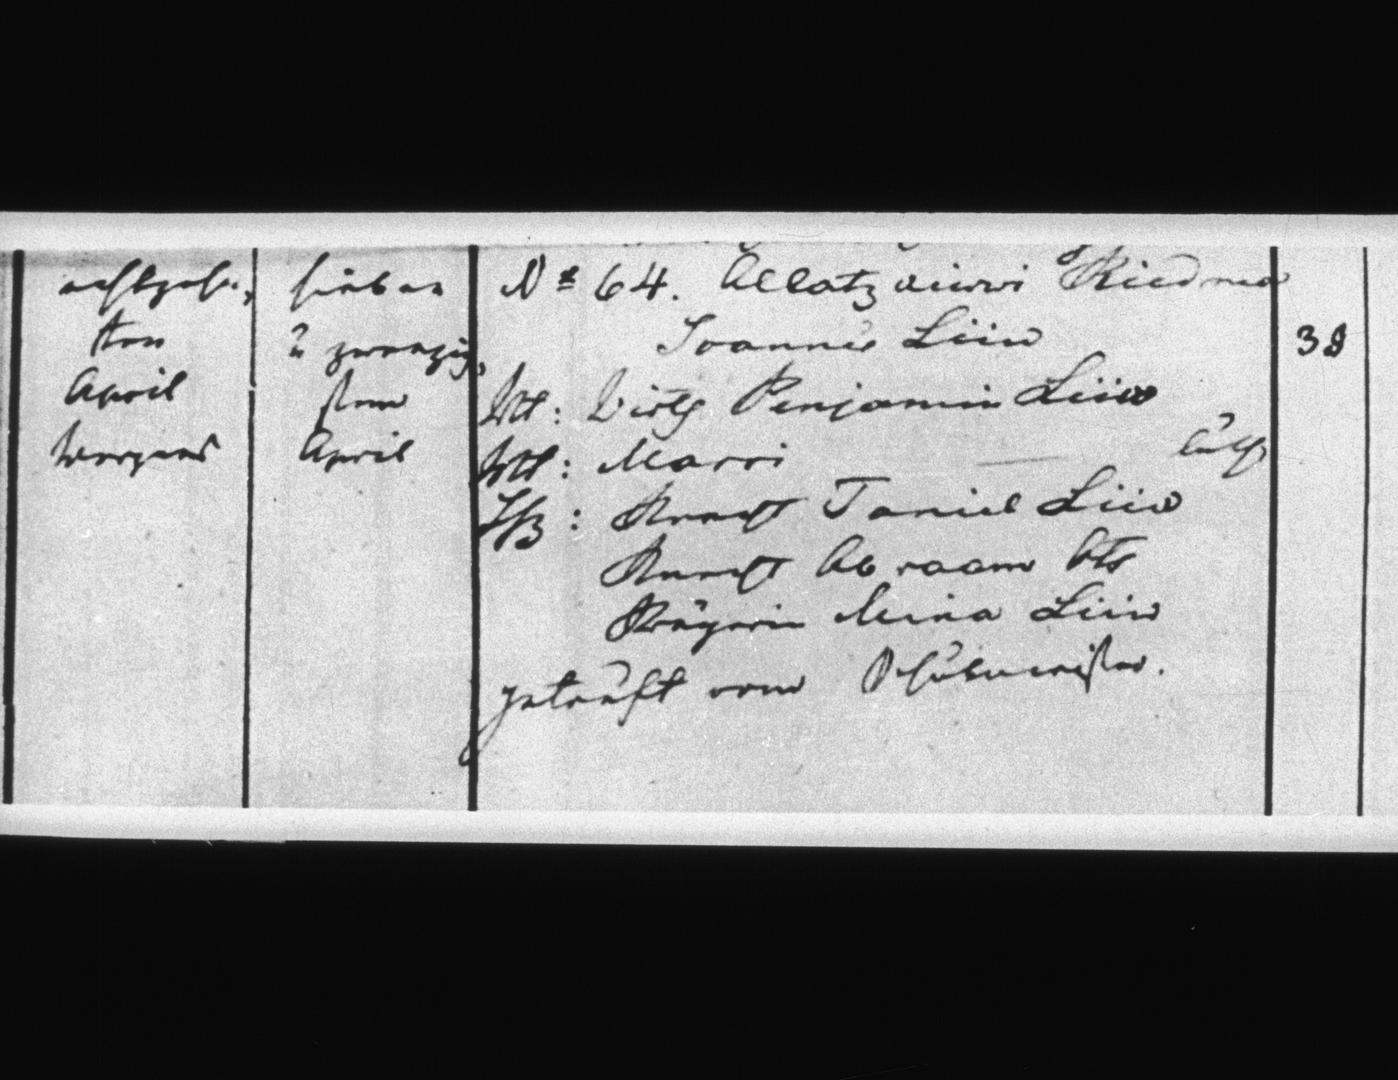 achtzehn-
ten
April
Morgens
sieben
u zwanzig-
sten
April
No 64. Allatzkiwwi Riedma
Joannes Liiw
Vtt: Wirth Penjamin Liiw
Mtt: Marri — luth
Tfz: Knecht Taniel Liiw
Knecht Abraam Ots
Mägdin Miina Liiw
getauft vom Schulmeister.
38